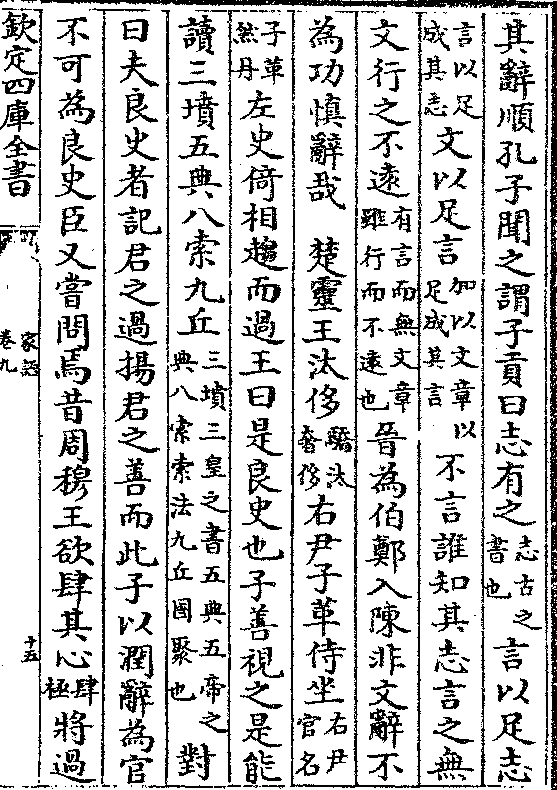 其辭順孔子聞之謂子貢曰志有之志古之書也言以足志
言以足成其志文以足言加以文章以足成其言不言誰知其志言之無
文行之不遠有言而無文章雖行而不遠也晉為伯鄭入陳非文辭不
為功慎辭哉　楚靈王汰侈驕汰奢侈右尹子革侍坐右尹官名
子革然丹左史倚相趨而過王曰是良史也子善視之是能
讀三墳五典八索九丘三墳三皇之書五典五帝之典八索索法九丘國聚也對
曰夫良史者記君之過揚君之善而此子以潤辭為官
不可為良史臣又嘗問焉昔周穆王欲肆其心肆極將過
欽定四庫全書
家語
卷九
十五